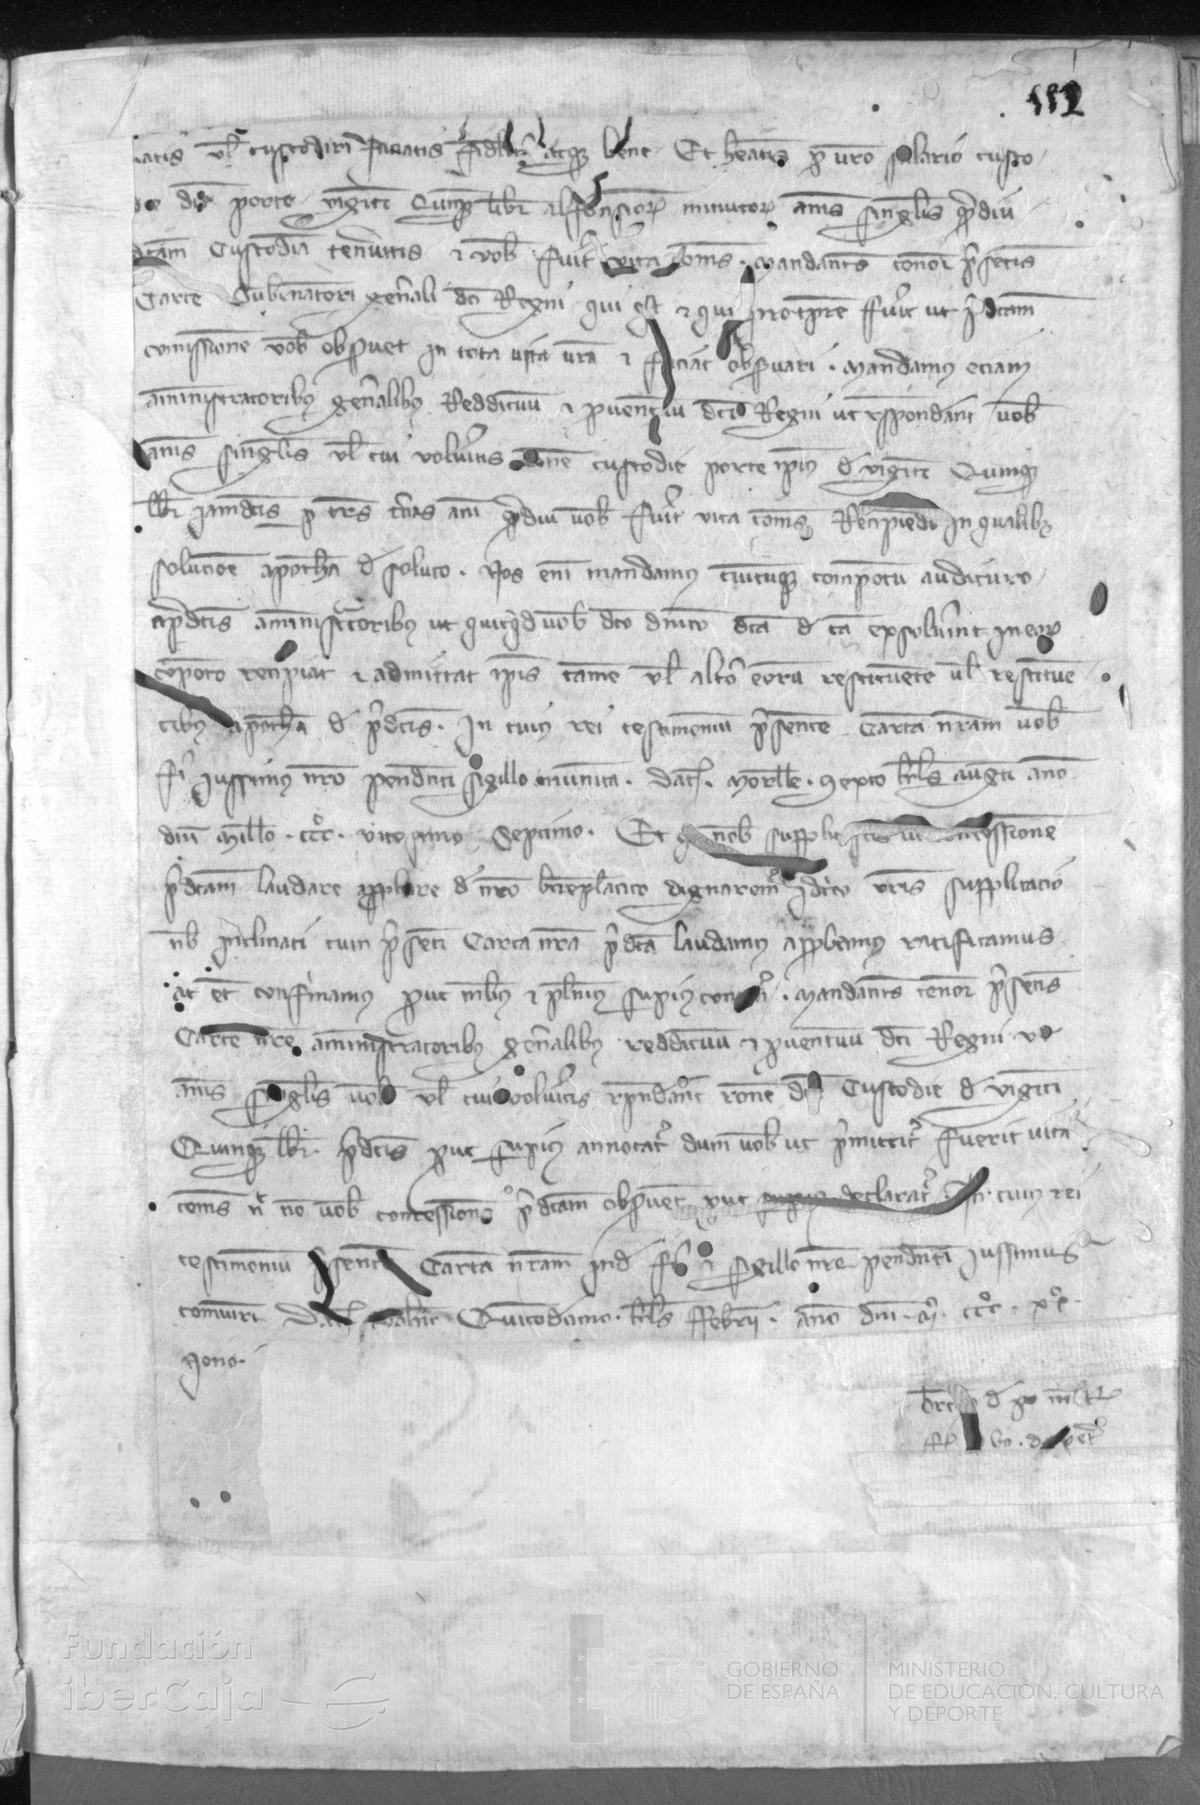 112
vel custodiri faciatis fideliter atque bene. Et habeatis pro vestro salario custo
die dicte porte viginti quinque libr alfonsinorum minutorum annis singulis quamdiu
dictam custodiam tenueritis et vobis fuerit vita comes. Mandantes tenore presentis
Carte Gubernatori generali dicti Regni qui est et qui pro tempore fuerit ut predictam
comissionem vobis observet in tota vita vestra et faciat observari. Mandamus etiam
aministratoribus generalibus Reddituum et proventuum dicti Regni ut respondeant vobis
annis singulis vel cui volueritis racione custodie porte ipsius de viginti Quinque
libr jamdictis per tres tercias anni quamdiu vobis fuerit vita comes Recipiendo in qualibet
solucione apocham de soluto. Nos enim mandamus cuicumque compotum audituro
a predictis aministratoribus ut quicquid vobis dicto dominico dicta de causa exsolverint in eorum
compoto recipiat et admittat ipsis tamen vel altero eorum restituente vel restituen
tibus apocham de predictis. In cuius rei testimonium presentem Cartam nostram vobis
fieri jussimus nostro pendenti sigillo munitam. Dat. Morelle. sexto kls augusti anno
domini Millo. CCC. vicesimo Septimo. Et nobis supplic concessionem
predictam laudare approbare de nostro beneplacito dignaremur Idcirco vestris supplicatio
nibus inclinati cum presenti Carta nostra predicta laudamus approbamus ratificamus
ac etiam confirmamus prout melius et plenius superius continetur. Mandantes tenore presentis
Carte nostre aministratoribus generalibus reddituum et proventuum dicti Regni ut
annis singulis vobis vel cui volueritis respondeant racione dicte Custodie de viginti
Quinque libr. predictis prout superius annotatur dum vobis ut premittitur fuerit vita
comes concessionem predictam observent prout superius declaratur. In cuius rei
testimonium presentem Cartam nostram inde fieri et sigillo nostro pendenti jussimus
comuniri Dat Valencie Quintodecimo. kls Febroarii. anno domini. M. CCC. XX.
Nono.
Fundación
iberCaja
GOBIERNO
DE ESPAÑA
MINISTERIO
DE EDUCACIÓN, CULTURA
Y DEPORTE